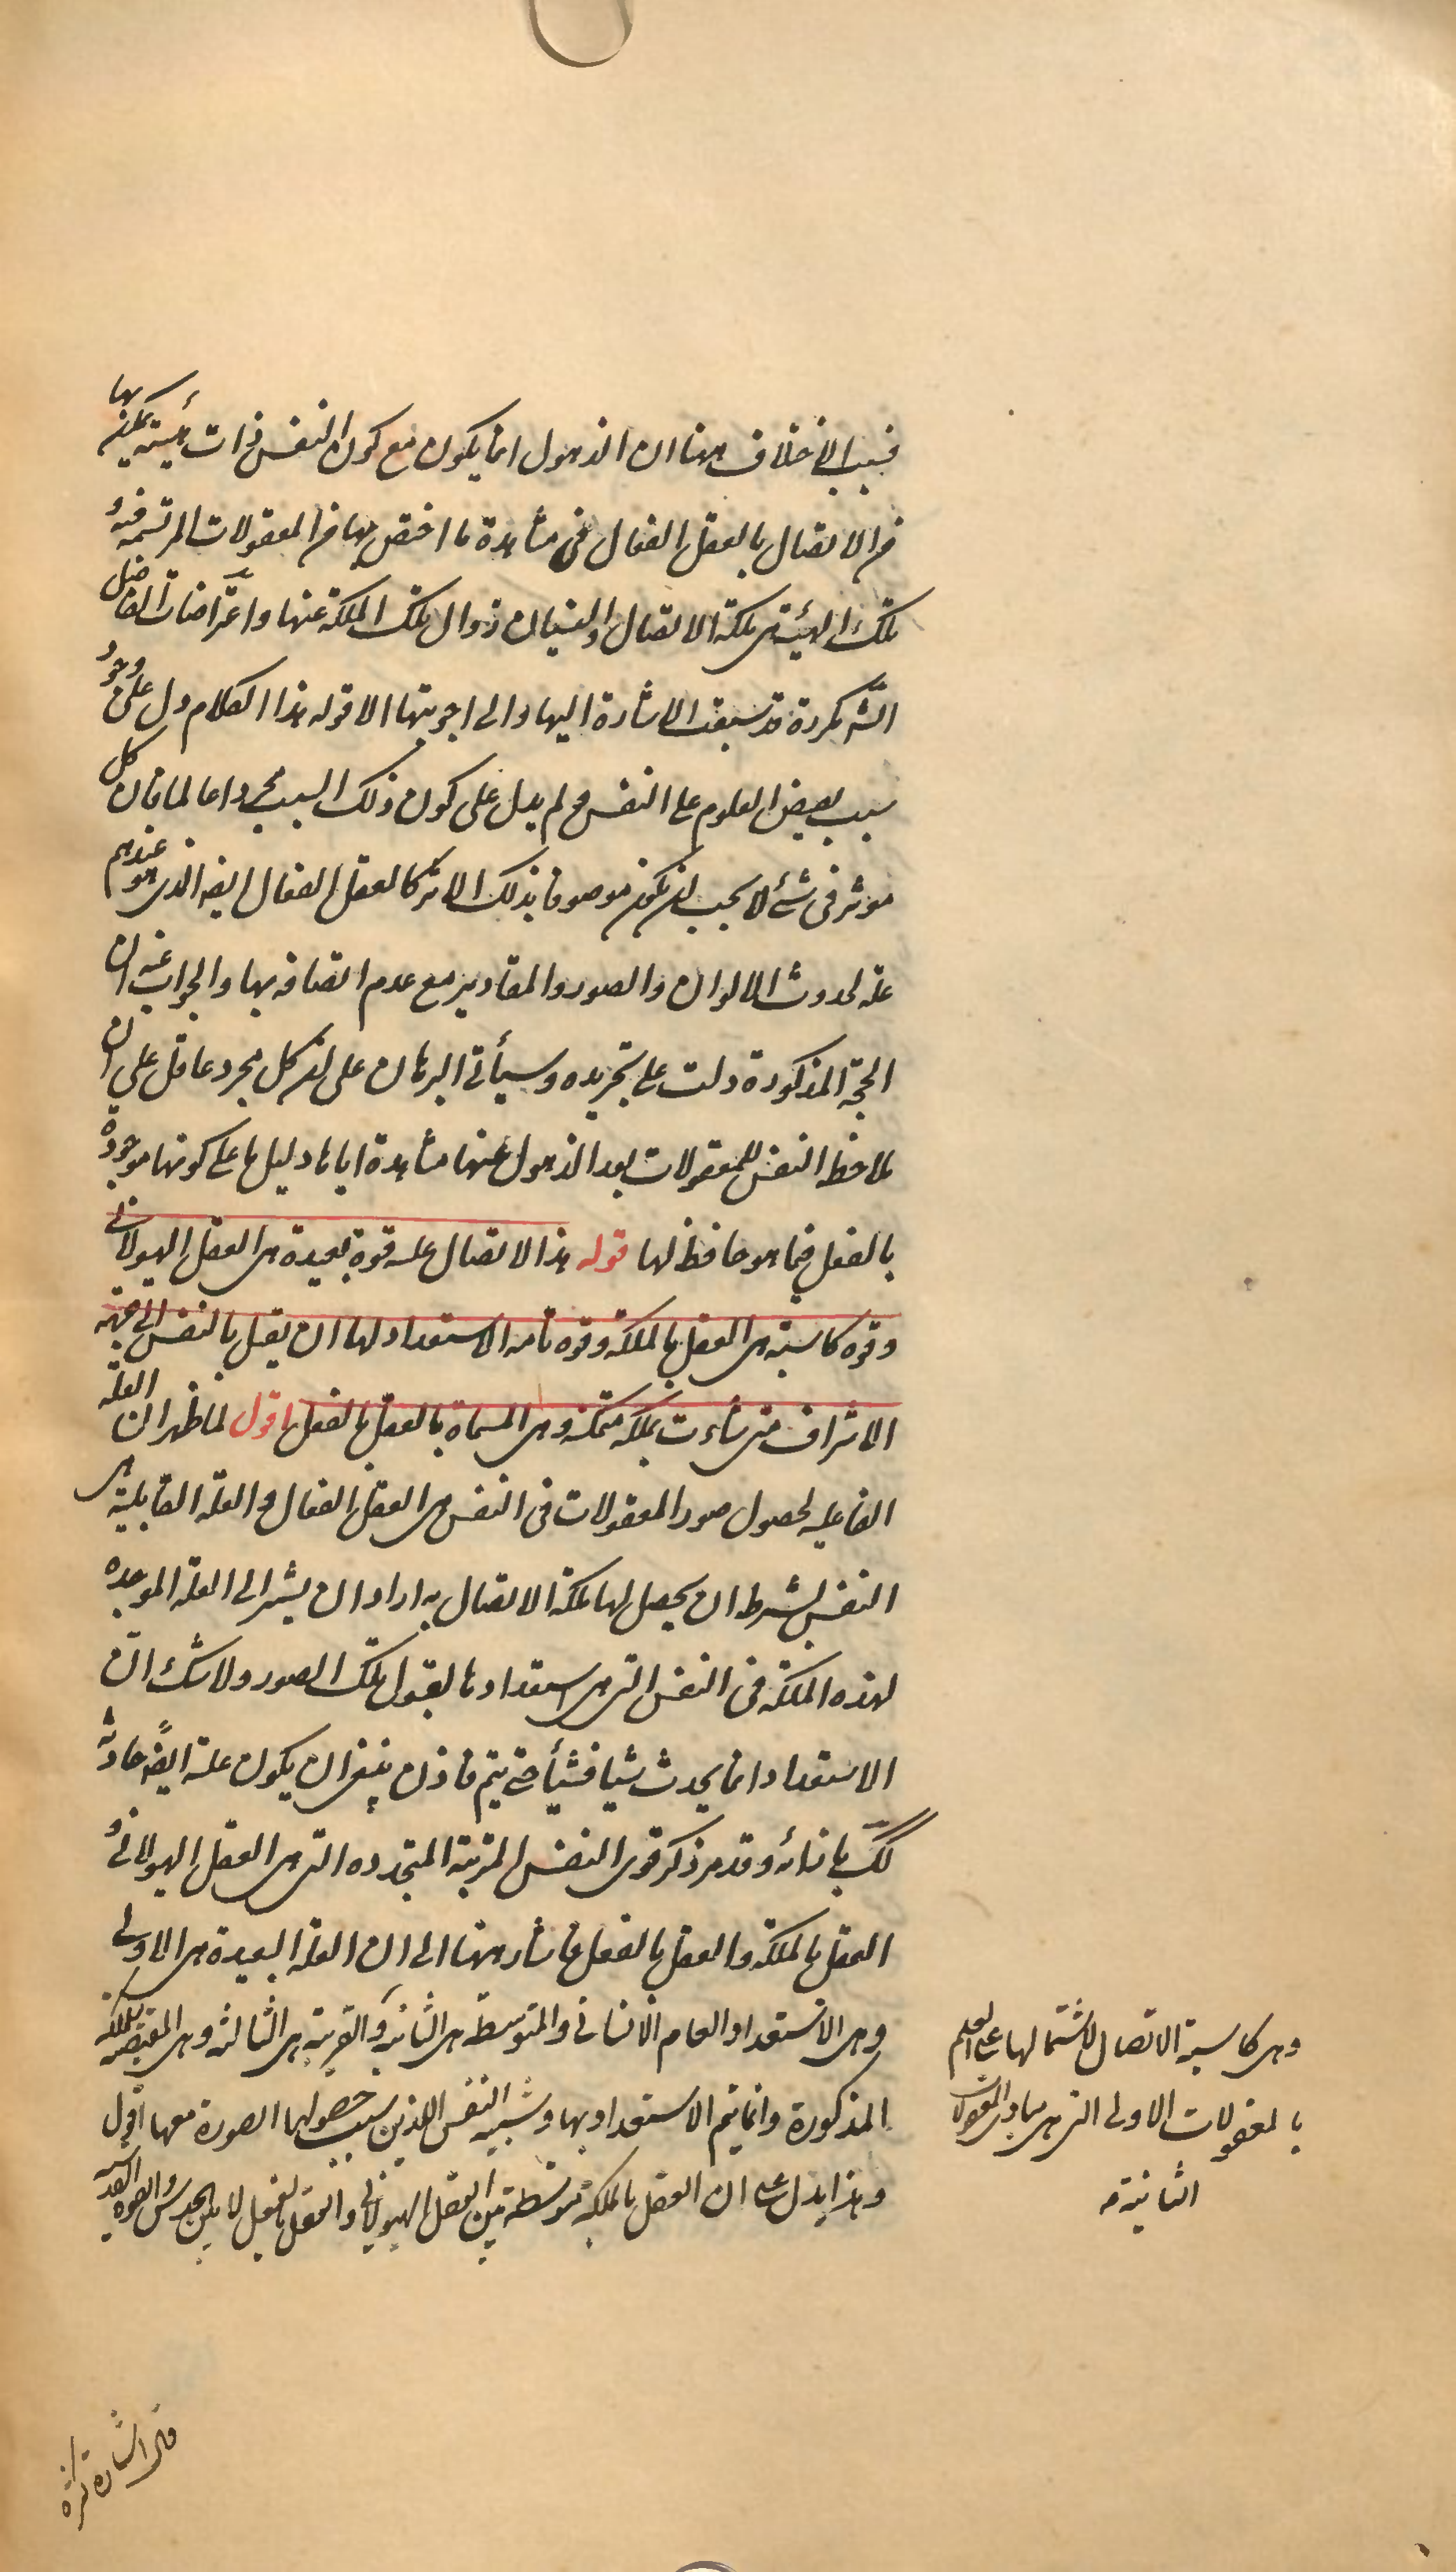 فسبب الاختلاف ههنا ان الذهول انما يكون مع كون النفس ذات هيئة يمكنها بها
من الاتصال بالعقل الفعال فى مشاهدة ما اختص بها من المعقولات المرتسمة فيه و
تلك الهيئة هى ملكة الاتصال والنسيان زوال تلك الملكة عنها واعتراضات الفاضل
الش مكررة قد سبقت الاشارة اليها والى اجوبتها الا قوله هذا الكلام دل على وجود
سبب يفيض العلوم على النفس و لم يدل على كون ذلك السبب مجردا عالما فان كل
موثر فى شئ لا يجب ان يكون موصوفا بذلك الاثر كالعقل الفعال ايضه الذى هو عندهم
علة لحدوث الالوان والصور والمقادير مع عدم اتصافه بها والجواب عنه ان
الحجة المذكورة دلت على تجريده وسيأتى البرهان على ان كل مجرد عاقل على ان
ملاحظة النفس للمعقولات بعد الذهول عنها مشاهدة اياها دليل ما على كونها موجودة
بالفعل فيما هو حافظ لها قوله هذا الاتصال علته قوة بعيدة هى العقل الهيولانى
وقوة كاسبة هى العقل بالملكة وقوة تامة الاستعداد لها ان يقبل بالنفس الى جهة
الاشراف متى شاءت بملكة متمكنة وهى المسماة بالعقل بالفعل اقول لما ظهر ان العلة
الفاعلية لحصول صور المعقولات فى النفس هى العقل الفعال و العلة القابلية هى
النفس بشرط ان يحصل لها ملكة الاتصال به اراد ان يشير الى العلة الموجدة
لهذه الملكة فى النفس التى هى استعدادها لقبول تلك الصور ولا شك ان
الاستعداد انما يحدث شيأ فشيأ حتى يتم فاذن ينبغى ان يكون علته ايضًا حادثة
كك بازائه وقد مر ذكر قوى النفس المرتبة المتجددة التى هى العقل الهيولانى و
العقل بالملكة والعقل بالفعل فاشار ههنا الى ان العلة البعيدة هى الاولى
وهى الاستعداد العام الانسانى والمتوسطة هى الثانية والقريبة هى الثالثة وهى المقتضية للملكة
المذكورة وانما يتم الاستعداد بها وشبيه النفس اللذين بسبب حصولهما الصورة معهما اقول
وهذا يدل على ان العقل بالملكة متوسطة بين العقل الهيولانى والعقل بالفعل لا بين الحدس والقوة القدسية
وهى كاسبة الاتصال لاشتمالها على العلم
بالمعقولات الاولى التى هى مبادى المعقولات
الثانية مـ